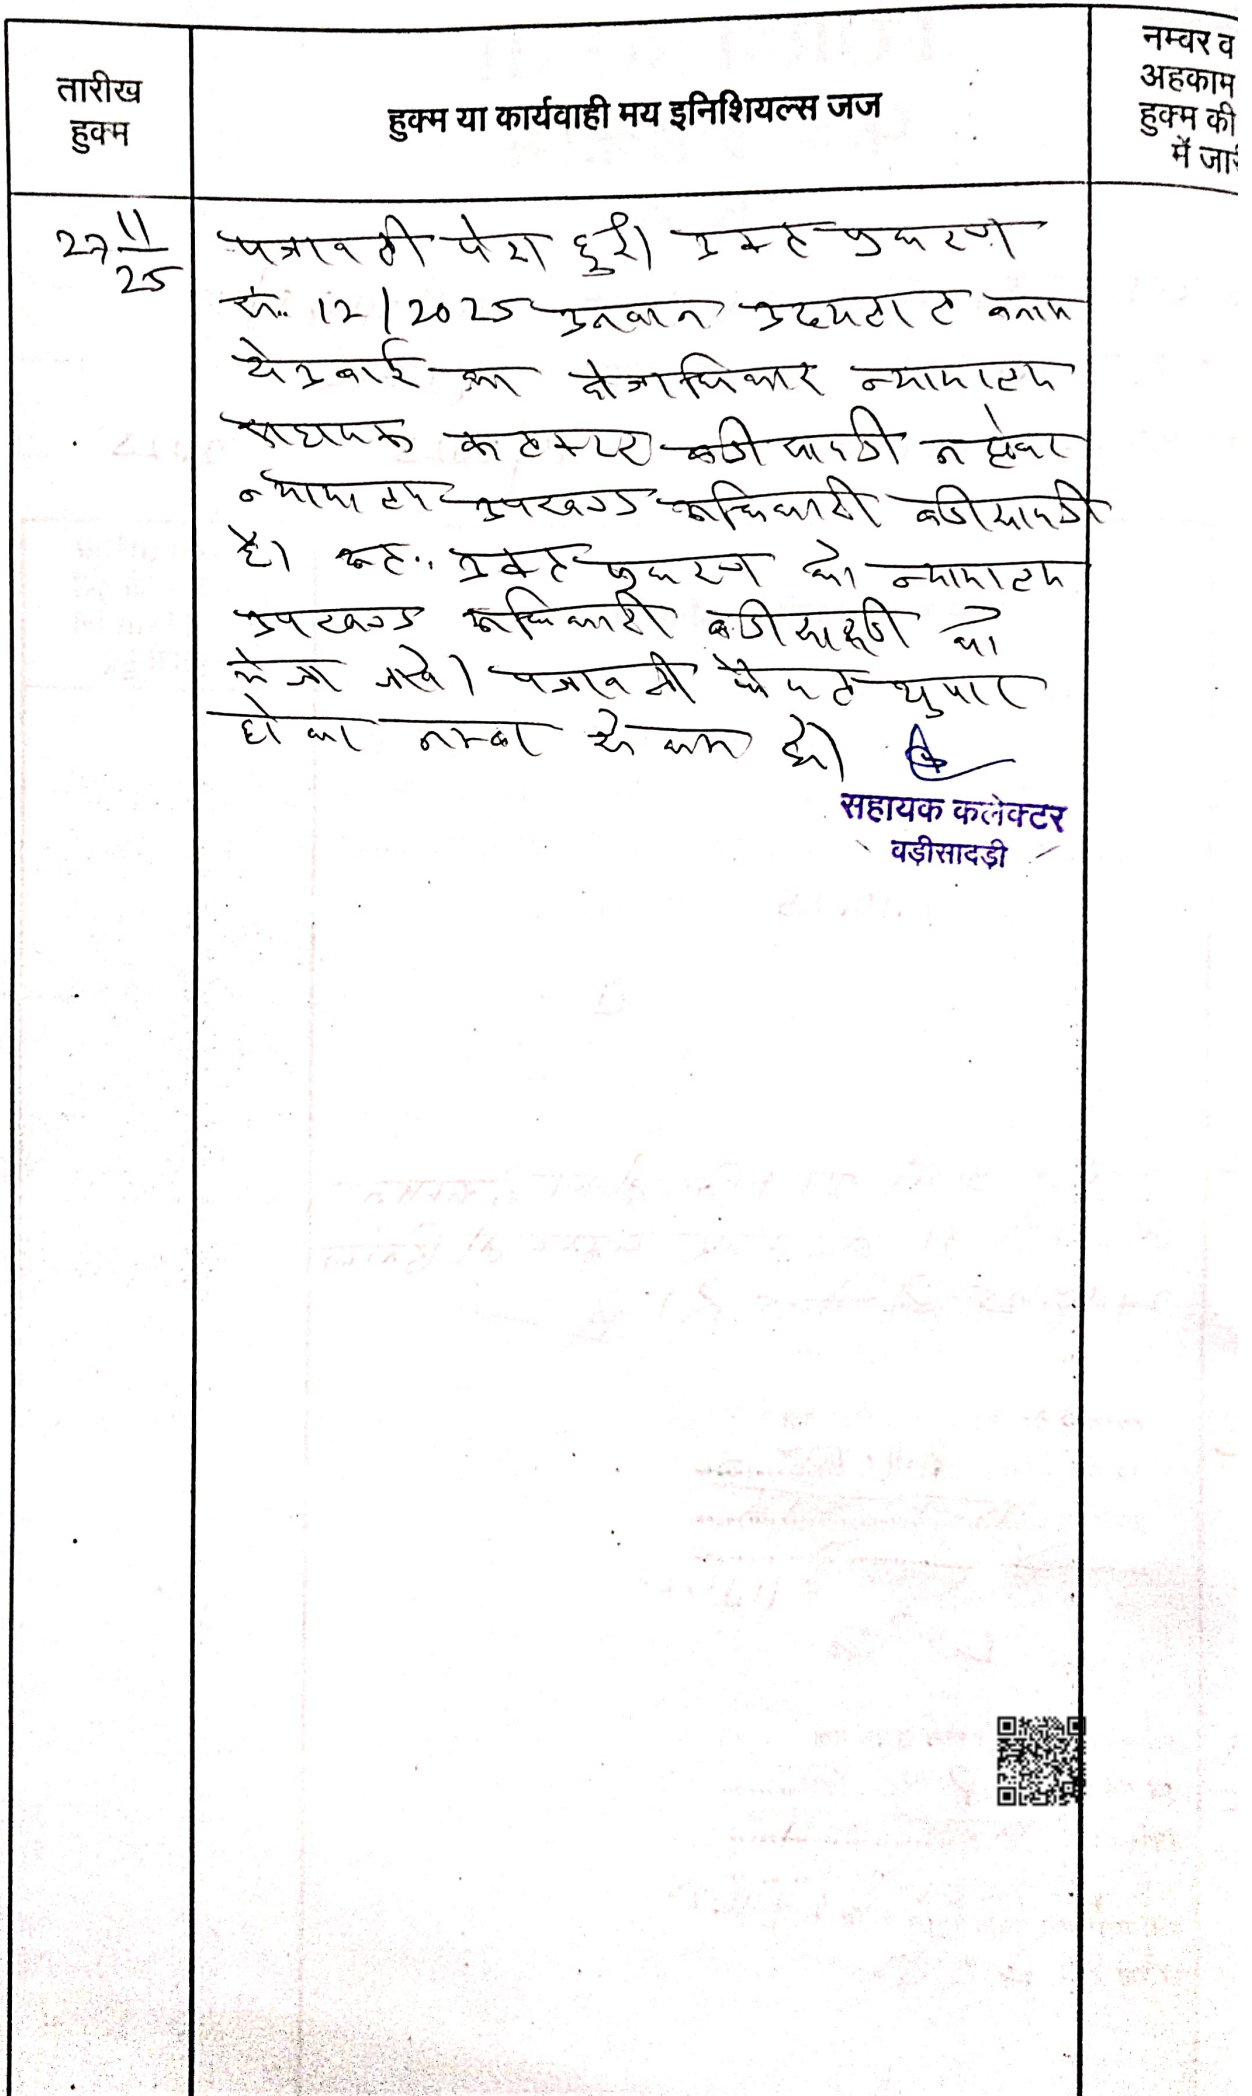 तारीख
हुक्म
हुक्म या कार्यवाही मय इनिशियल्स जज
नम्बर व
अहकाम
हुक्म की
में जारी
27 11/25
पत्रावली पेश हुई। उक्त प्रकरण
सं. 12/2025 उनवान उदयलाल बनाम
का क्षेत्राधिकार न्यायालय
सहायक कलक्टर बडीसादडी न होकर
न्यायालय उपखण्ड अधिकारी बडीसादडी
है। अतः उक्त प्रकरण को न्यायालय
उपखण्ड अधिकारी बडीसादडी को
भेजा जावे। पत्रावली फैसल शुमार
होकर नम्बर से कम हो।
सहायक कलेक्टर
बड़ीसादड़ी